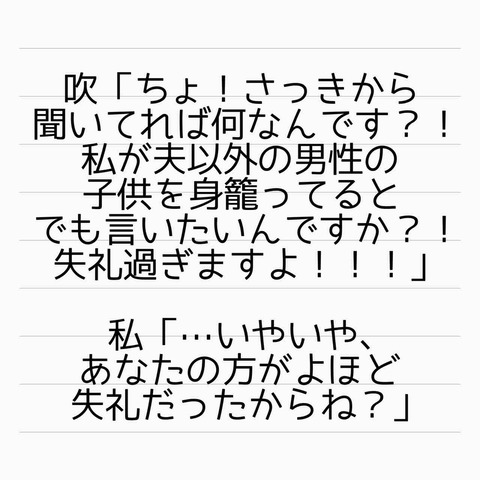 吹「ちょ！さっきから
聞いてれば何なんです？！
私が夫以外の男性の
子供を身籠ってると
でも言いたいんですか？！
失礼過ぎますよ！！！」
私「…いやいや、
あなたの方がよほど
失礼だったからね？」